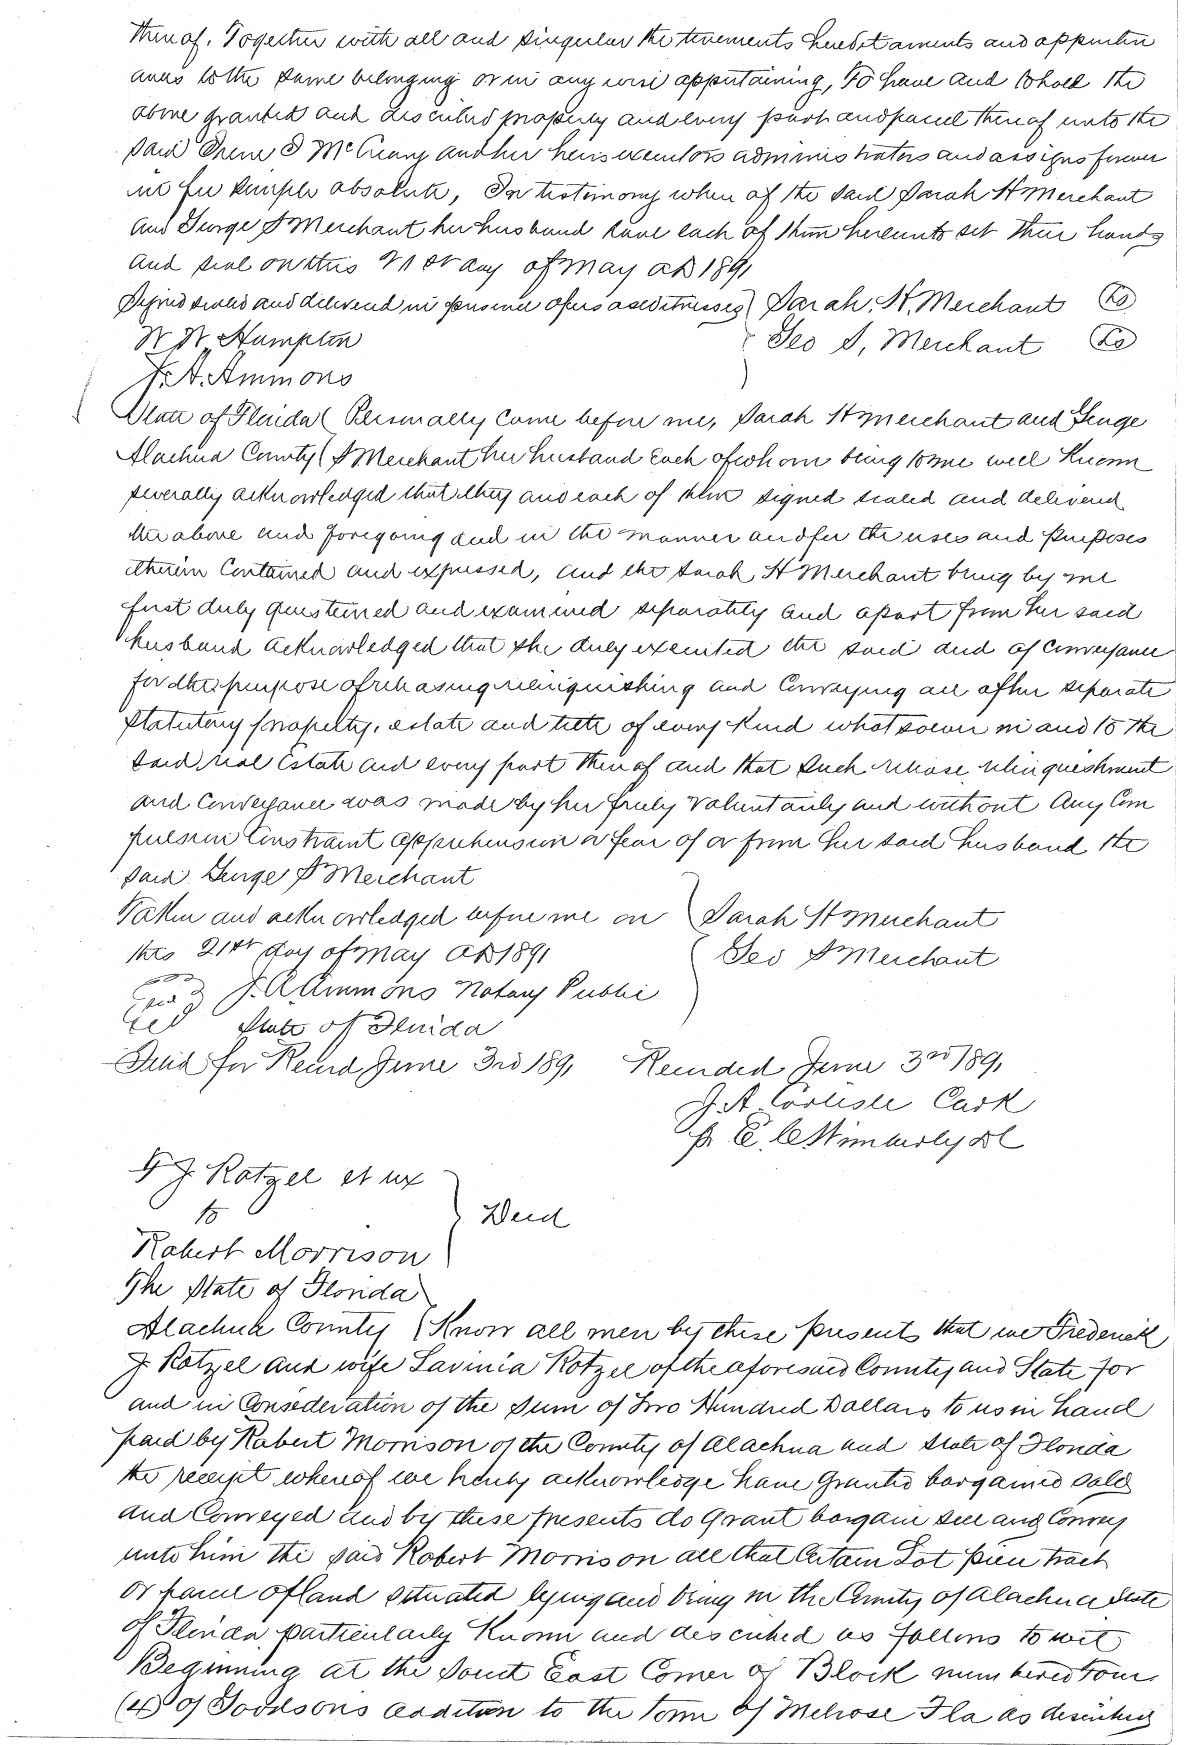 thereof. Together with all and singular the tenements hereditaments and appurten
ances to the same belonging or in any wise appertaining, To have and to hold the
above granted and described property and every part and parcel thereof unto the
said Irene I McCreary and her heirs executors administrators and assigns forever
in fee simple absolute, In testimony where of the said Sarah H Merchant
and George S Merchant her husband have each of them hereunto set their hands
and seal on this 21st day of May AD 1891
Signed sealed and delivered in presence of us as witnesses Sarah. H. Merchant LS
W W Hampton Geo S, Merchant LS
J. A. Ammons
State of Florida Personally came before me, Sarah H Merchant and George
Alachua County S Merchant her husband Each of whom being to me well Known
severally acknowledged that they and each of them signed sealed and delivered
the above and foregoing deed in the manner and for the uses and purposes
therein Contained and expressed, and the Sarah H Merchant being by me
first duly questioned and examined separately and apart from her said
husband acknowledged that she duly executed the said deed of Conveyance
for the purpose of releasing relinquishing and Conveying all of her separate
statutory property, estate and title of every Kind whatsoever in and to the
said real Estate and every part thereof and that such release relinquishment
and Conveyance was made by her freely voluntarily and without Any Com
pulsion Constraint apprehension or fear of or from her said husband the
said George S Merchant
Taken and acknowledged before me on Sarah H Merchant
this 21st day of May AD 1891 Geo S Merchant
J. A. Ammons Notary Public
Seal State of Florida
Filed for Record June 3rd 1891 Recorded June 3rd 1891
J. A. Carlisle Clerk
pr E. C. Wimberly DC
F J. Kotzel et ux
to Deed
Robert Morrison
The State of Florida
Alachua County Know all men by these presents that we Frederick
J Kotzel and wife Lavinia Kotzel of the aforesaid County and State for
and in Consideration of the Sum of Two Hundred Dollars to us in hand
paid by Robert Morrison of the County of Alachua and State of Florida
the receipt whereof we hereby acknowledge have Granted bargained sold
and Conveyed and by these presents do Grant bargain sell and Convey
unto him the said Robert Morrison all that Certain Lot piece tract
or parcel of land situated lying and being in the County of Alachua State
of Florida particularly Known and described as follows to wit
Beginning at the South East Corner of Block numbered Four
(4) of Goodsons addition to the Town of Melrose Fla as described